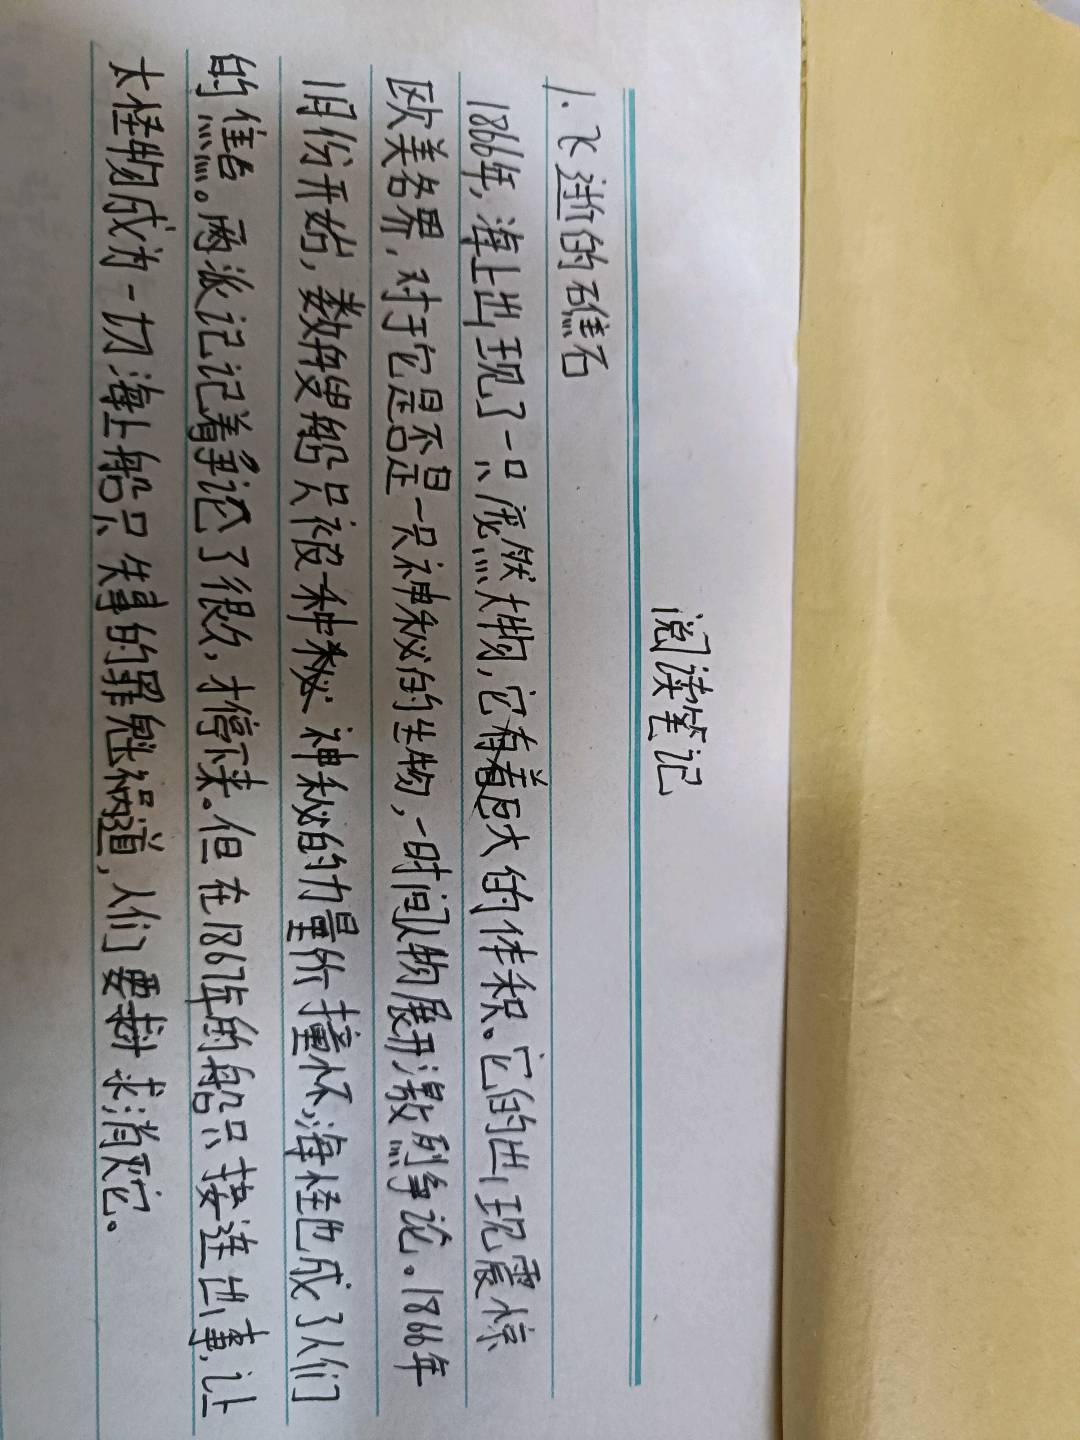 阅读笔记
1. 飞逝的礁石
1866年,海上出现了一只庞然大物,它有着巨大的体积。它的出现震惊
欧美各界,对于它是不是一只神秘的生物,一时间人物展开激烈争论。1866年
1月份开始,数艘船只被神秘的力量所撞坏,海怪也成了人们
的焦点。两派记记着争论了很久,才停下来。但在1867年的船只接连出事,让
大怪物成为一切海上船只失事的罪魁祸首,人们要求消灭它。